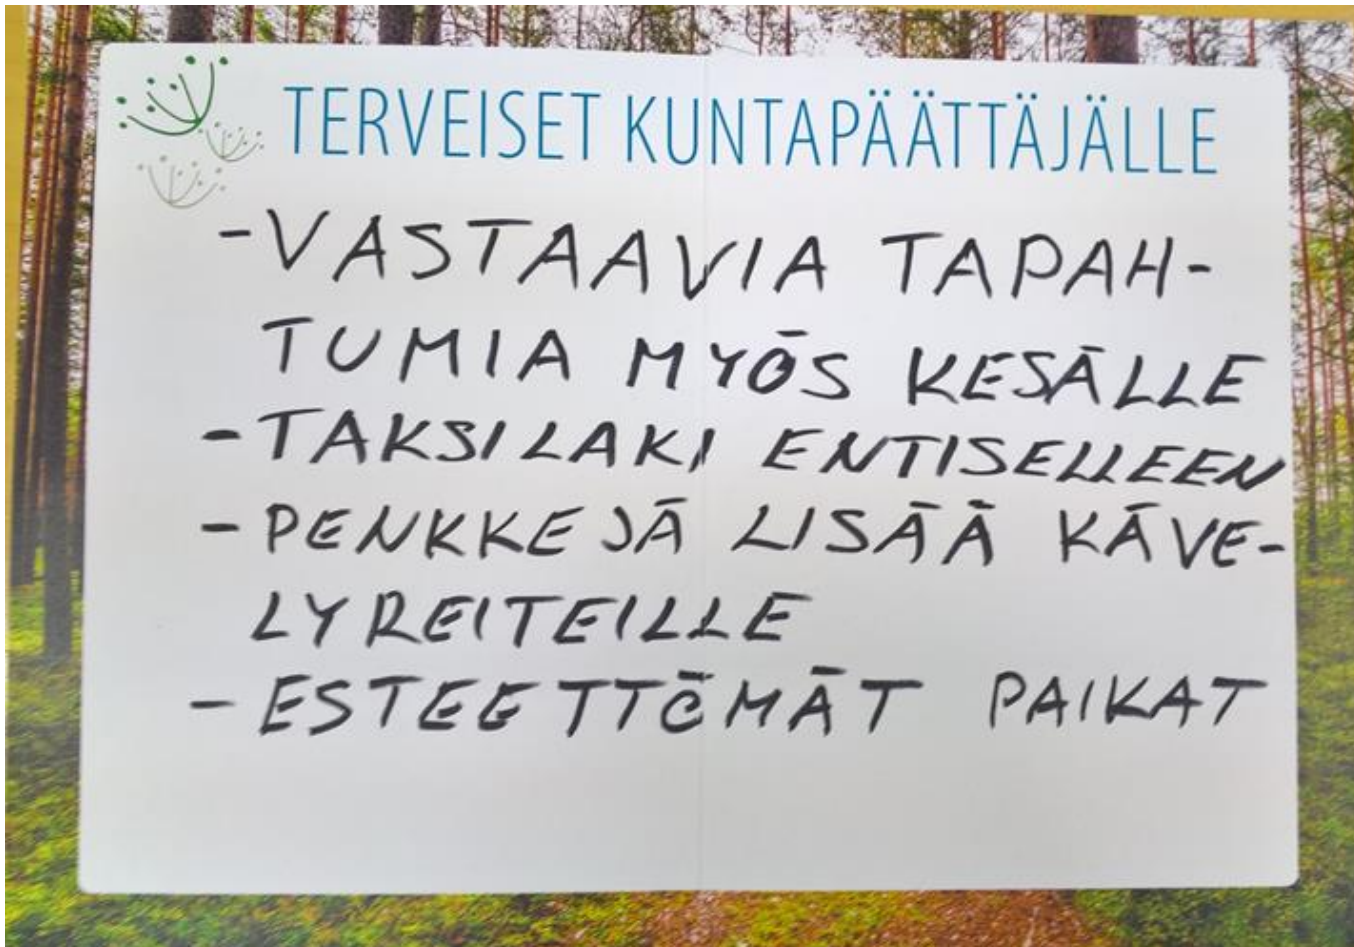 TERVEISET KUNTAPÄÄTTÄJÄLLE
-VASTAAVIA TAPAH-
TUMIA MYÖS KESÄLLE
-TAKSILAKI ENTISELLEEN
-PENKKEJÄ LISÄÄ KÄVE-
LYREITEILLE
-ESTEETTÖMÄT PAIKAT